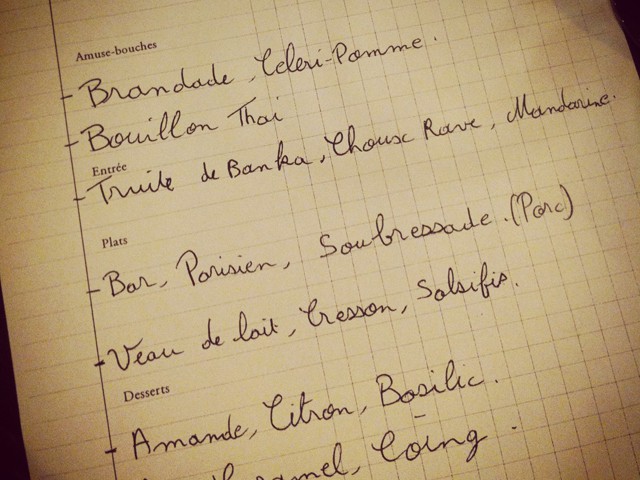 Amuse-bouches
- Brandade, Céleri-Pomme.
- Bouillon Thai
Entrée
- Truite de Banka, Choux Rave, Mandarine.
Plats
- Bar, Parisien, Soubressade. (Porc)
- Veau de lait, Cresson, Salsifis.
Desserts
- Amande, Citron, Basilic.
Caramel, Coing.